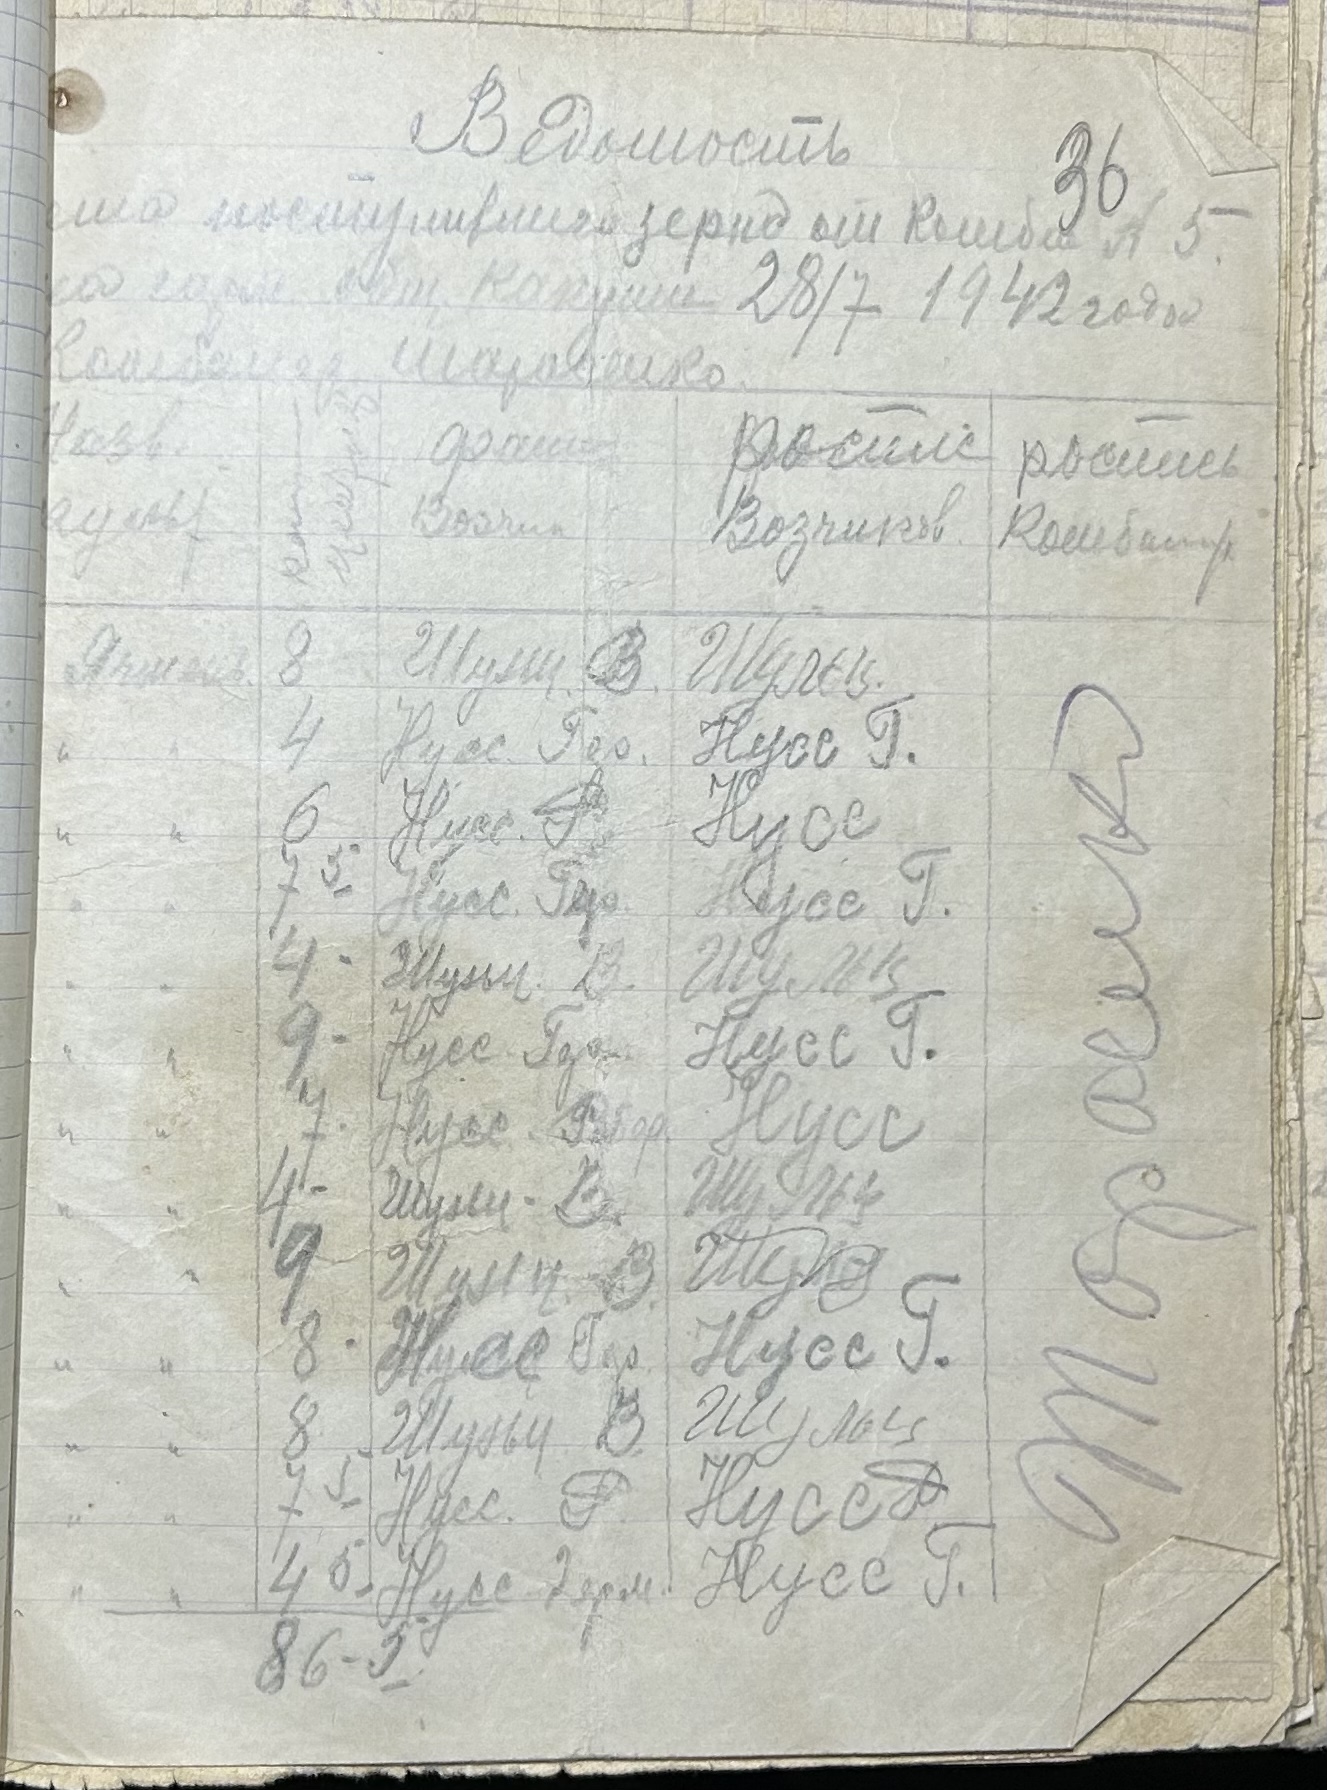 Ведомость
36
поступившего зерна от Комб. № 5.
28/7 1942 года
Комбайнер Тарасенко.
Назв. фам. роспис роспись
культ Возчик Возчиков. Комбайнера
Ячмень. 8 Шульц. В. Шульц.
" " 4 Нусс. Гер. Нусс Г.
" " 6 Нусс. Нусс
" " 7 5 Нусс. Гер. Нусс Г.
" " 4 - Шульц. В. Шульц
" " 9 - Нусс. Гер. Нусс Г.
" " 7. Нусс. Нусс
" " 4 - Шульц - В. Шульц
" " 9 Шульц. В. Шульц
" " 8 - Нусс Гер. Нусс Г.
" " 8 Шульц В. Шульц
" " 7 5 Нусс. Ф. Нусс Ф
" " 4 5 Нусс Герм. Нусс Г.
86 - 5
Тарасенко